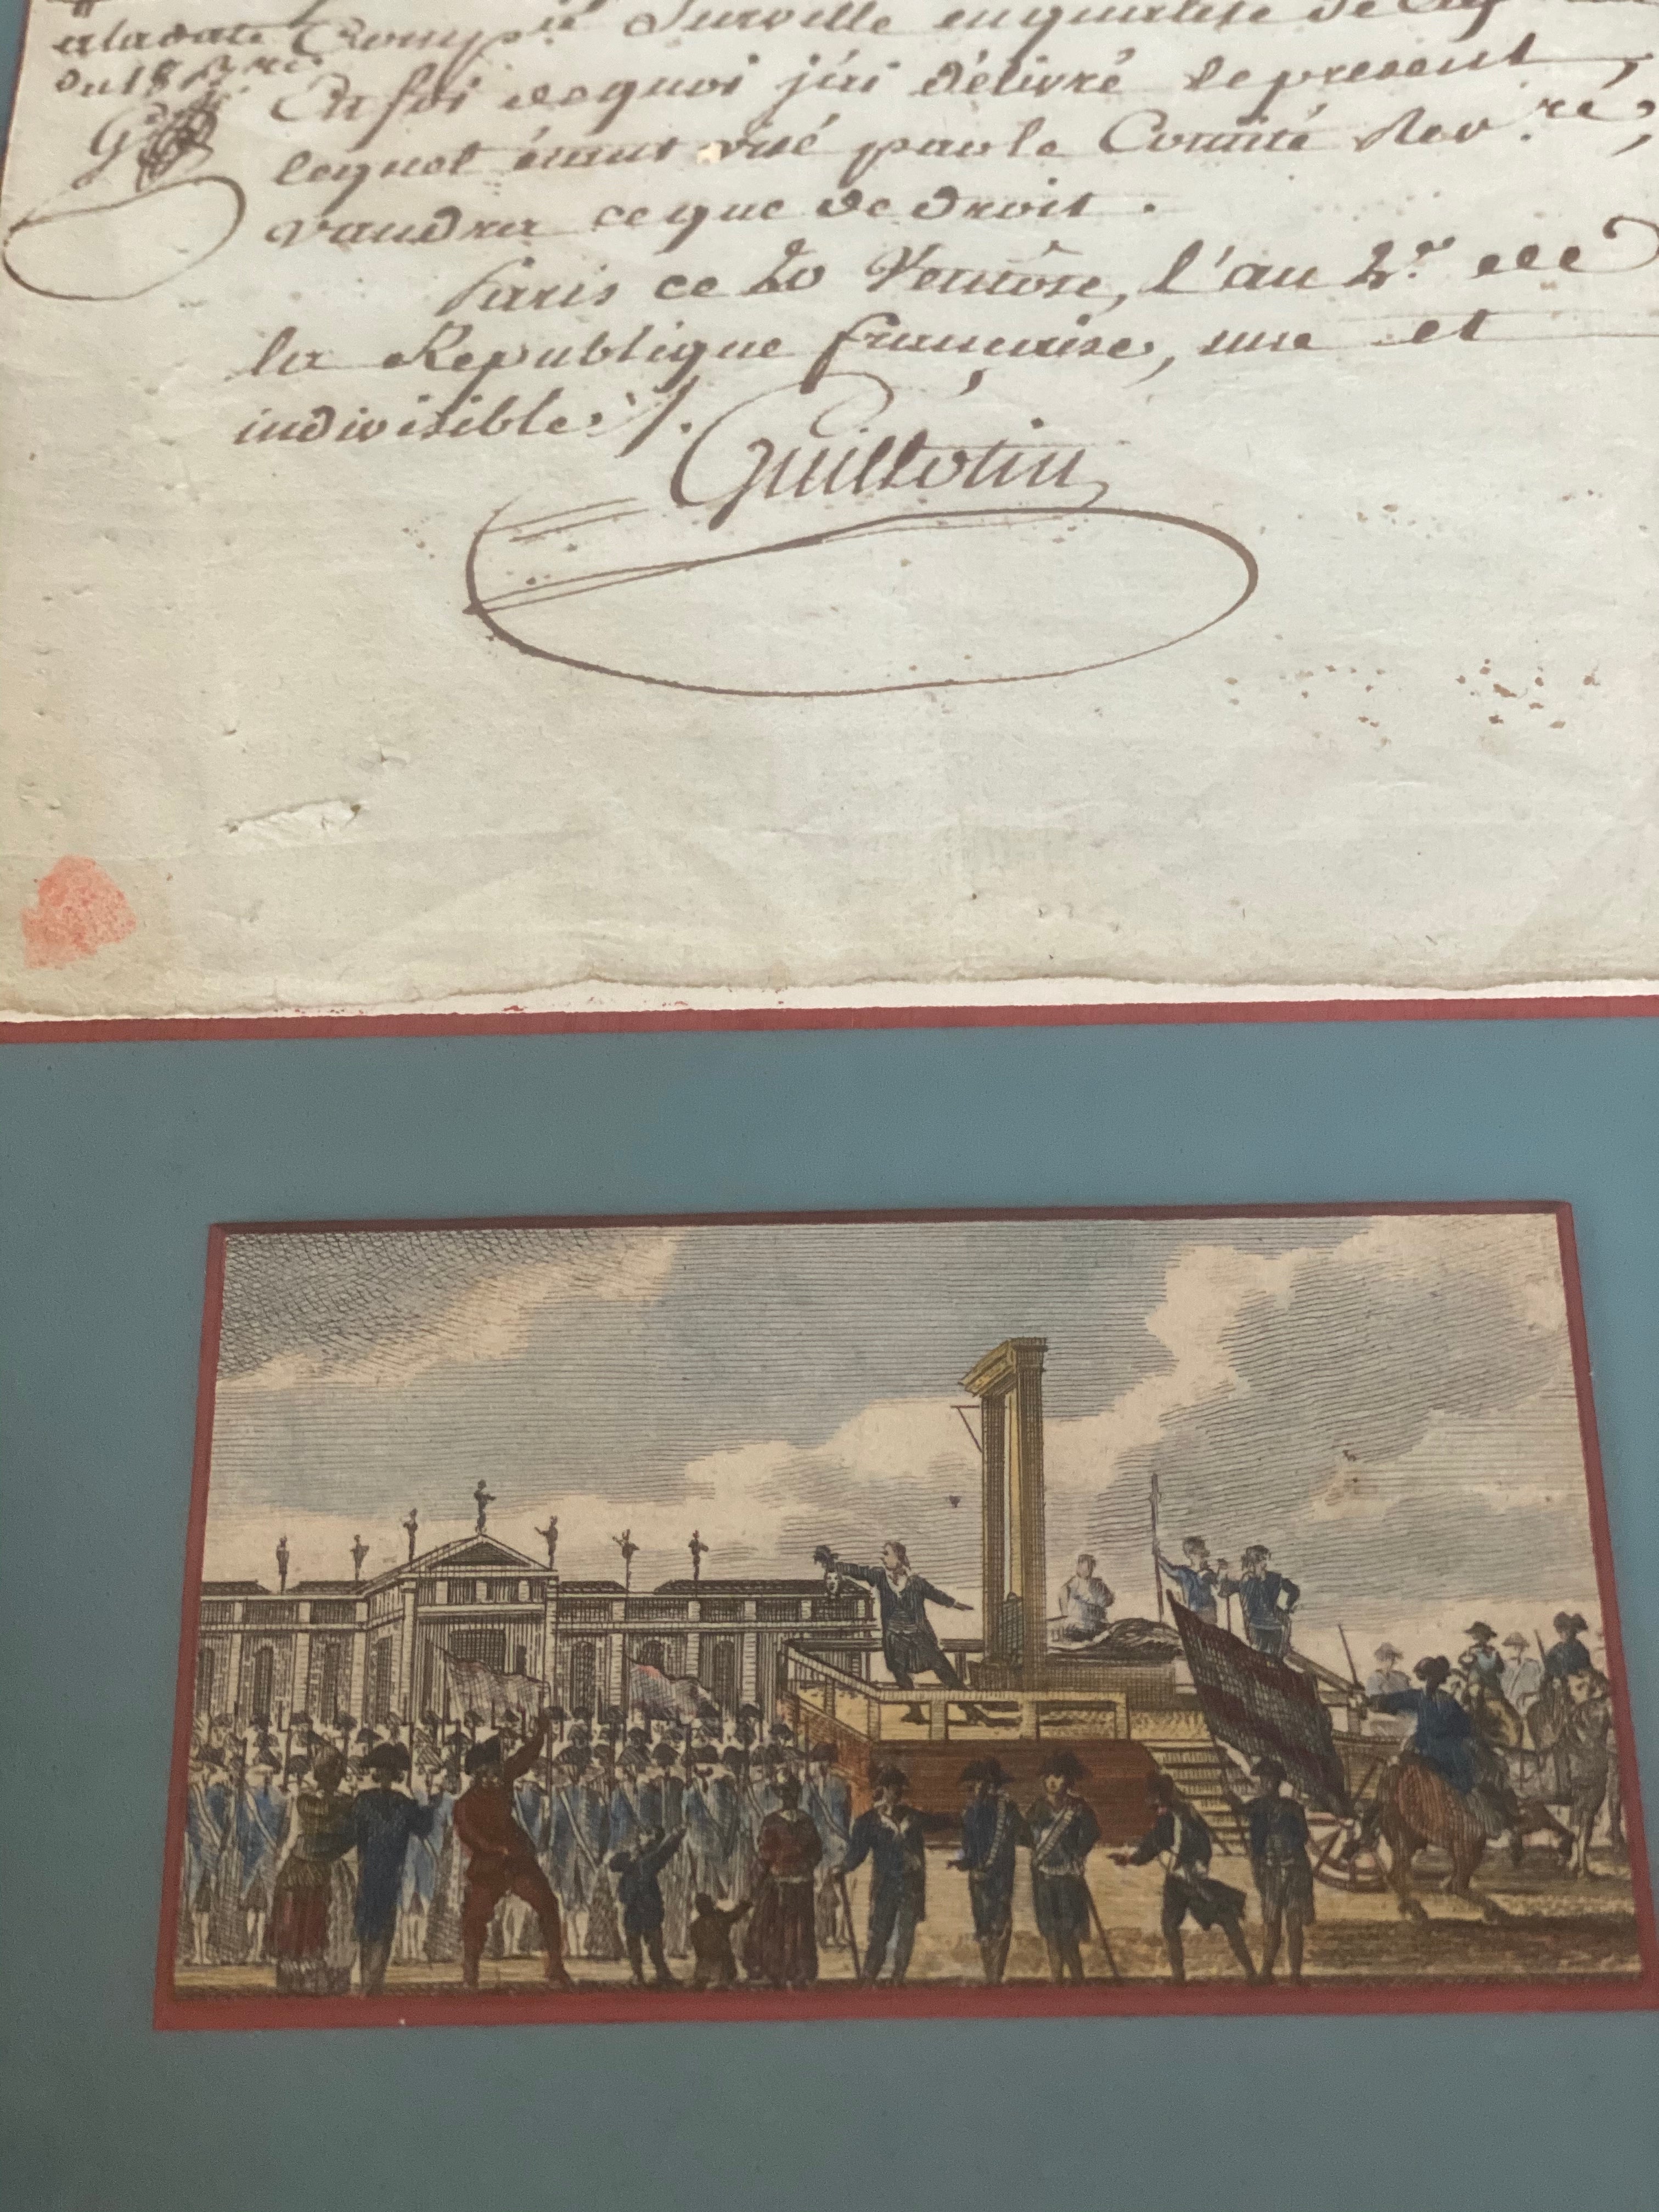 à la date
du 18
Surville en qualité de
En foi de quoi j'ai délivré le présent,
lequel étant visé par le Comité Rev.re,
vaudra ce que de droit.
Paris ce 20 Ventôse, l'an 2.e de
la Republique française, une et
indivisible./.
Guillotin